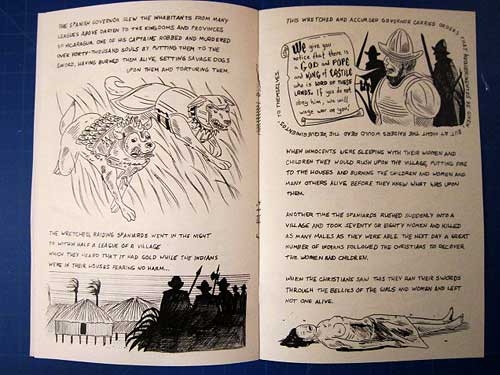 THE SPANISH GOVERNOR SLEW THE INHABITANTS FROM MANY
LEAGUES ABOVE DARIEN TO THE KINGDOMS AND PROVINCES
OF NICARAGUA. ONE OF HIS CAPTAINS ROBBED AND MURDERED
OVER FORTY-THOUSAND SOULS BY PUTTING THEM TO THE
SWORD, HAVING BURNED THEM ALIVE, SETTING SAVAGE DOGS
UPON THEM AND TORTURING THEM.
THE WRETCHED, RAIDING SPANIARDS WENT IN THE NIGHT
TO WITHIN HALF A LEAGUE OF A VILLAGE
WHEN THEY HEARD THAT IT HAD GOLD WHILE THE INDIANS
WERE IN THEIR HOUSES FEARING NO HARM...
THIS WRETCHED AND ACCURSED GOVERNOR CARRIED ORDERS
BUT AT NIGHT THE RAIDERS WOULD READ THE REQUIREMENTS
TO THEMSELVES.
We give you
notice that there is
a GOD and POPE
and KING of CASTILE
who is LORD OF THESE
LANDS. If you do not
obey him, we will
wage war on you!
WHEN INNOCENTS WERE SLEEPING WITH THEIR WOMEN AND
CHILDREN THEY WOULD RUSH UPON THE VILLAGE, PUTTING FIRE
TO THE HOUSES AND BURNING THE CHILDREN AND WOMEN AND
MANY OTHERS ALIVE BEFORE THEY KNEW WHAT WAS UPON
THEM.
ANOTHER TIME THE SPANIARDS RUSHED SUDDENLY INTO A
VILLAGE AND TOOK SEVENTY OR EIGHTY WOMEN AND KILLED
AS MANY MALES AS THEY WERE ABLE. THE NEXT DAY A GREAT
NUMBER OF INDIANS FOLLOWED THE CHRISTIANS TO RECOVER
THE WOMEN AND CHILDREN.
WHEN THE CHRISTIANS SAW THIS THEY RAN THEIR SWORDS
THROUGH THE BELLIES OF THE GIRLS AND WOMEN AND LEFT
NOT ONE ALIVE.